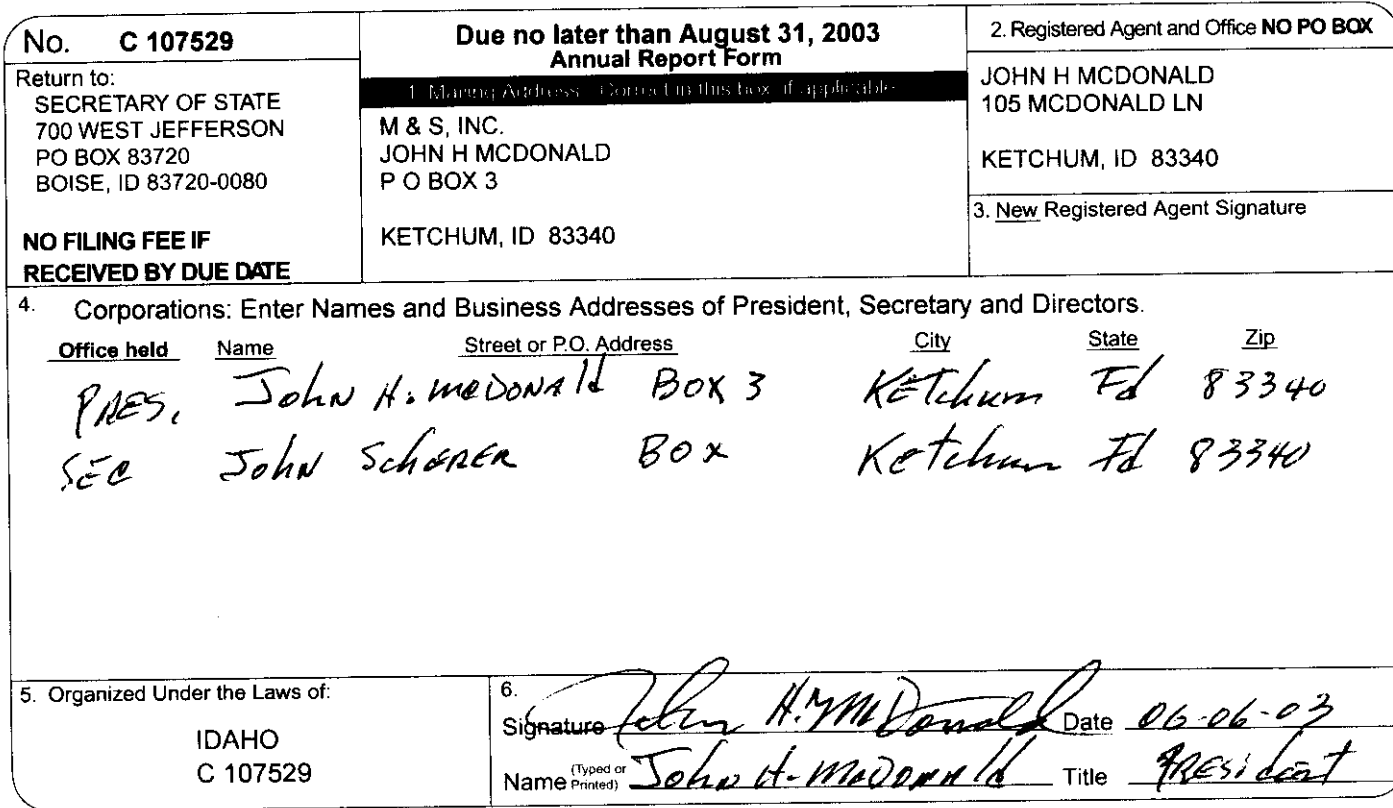 No. C 107529
Return to:
SECRETARY OF STATE
700 WEST JEFFERSON
PO BOX 83720
BOISE, ID 83720-0080
NO FILING FEE IF
RECEIVED BY DUE DATE
Due no later than August 31, 2003
Annual Report Form
1. Mailing Address: Correct in this box, if applicable
M & S, INC.
JOHN H MCDONALD
P O BOX 3
KETCHUM, ID 83340
2. Registered Agent and Office NO PO BOX
JOHN H MCDONALD
105 MCDONALD LN
KETCHUM, ID 83340
3. New Registered Agent Signature
4. Corporations: Enter Names and Business Addresses of President, Secretary and Directors.
Office held Name Street or P.O. Address City State Zip
PRES. John H. McDONAld BOX 3 KETchum Id 83340
SEC John SchERER BOX Ketchum Id 83340
5. Organized Under the Laws of:
IDAHO
C 107529
6.
Signature John H. McDonald Date 06-06-03
Name (Typed or Printed) John H. McDONAld Title PRESident